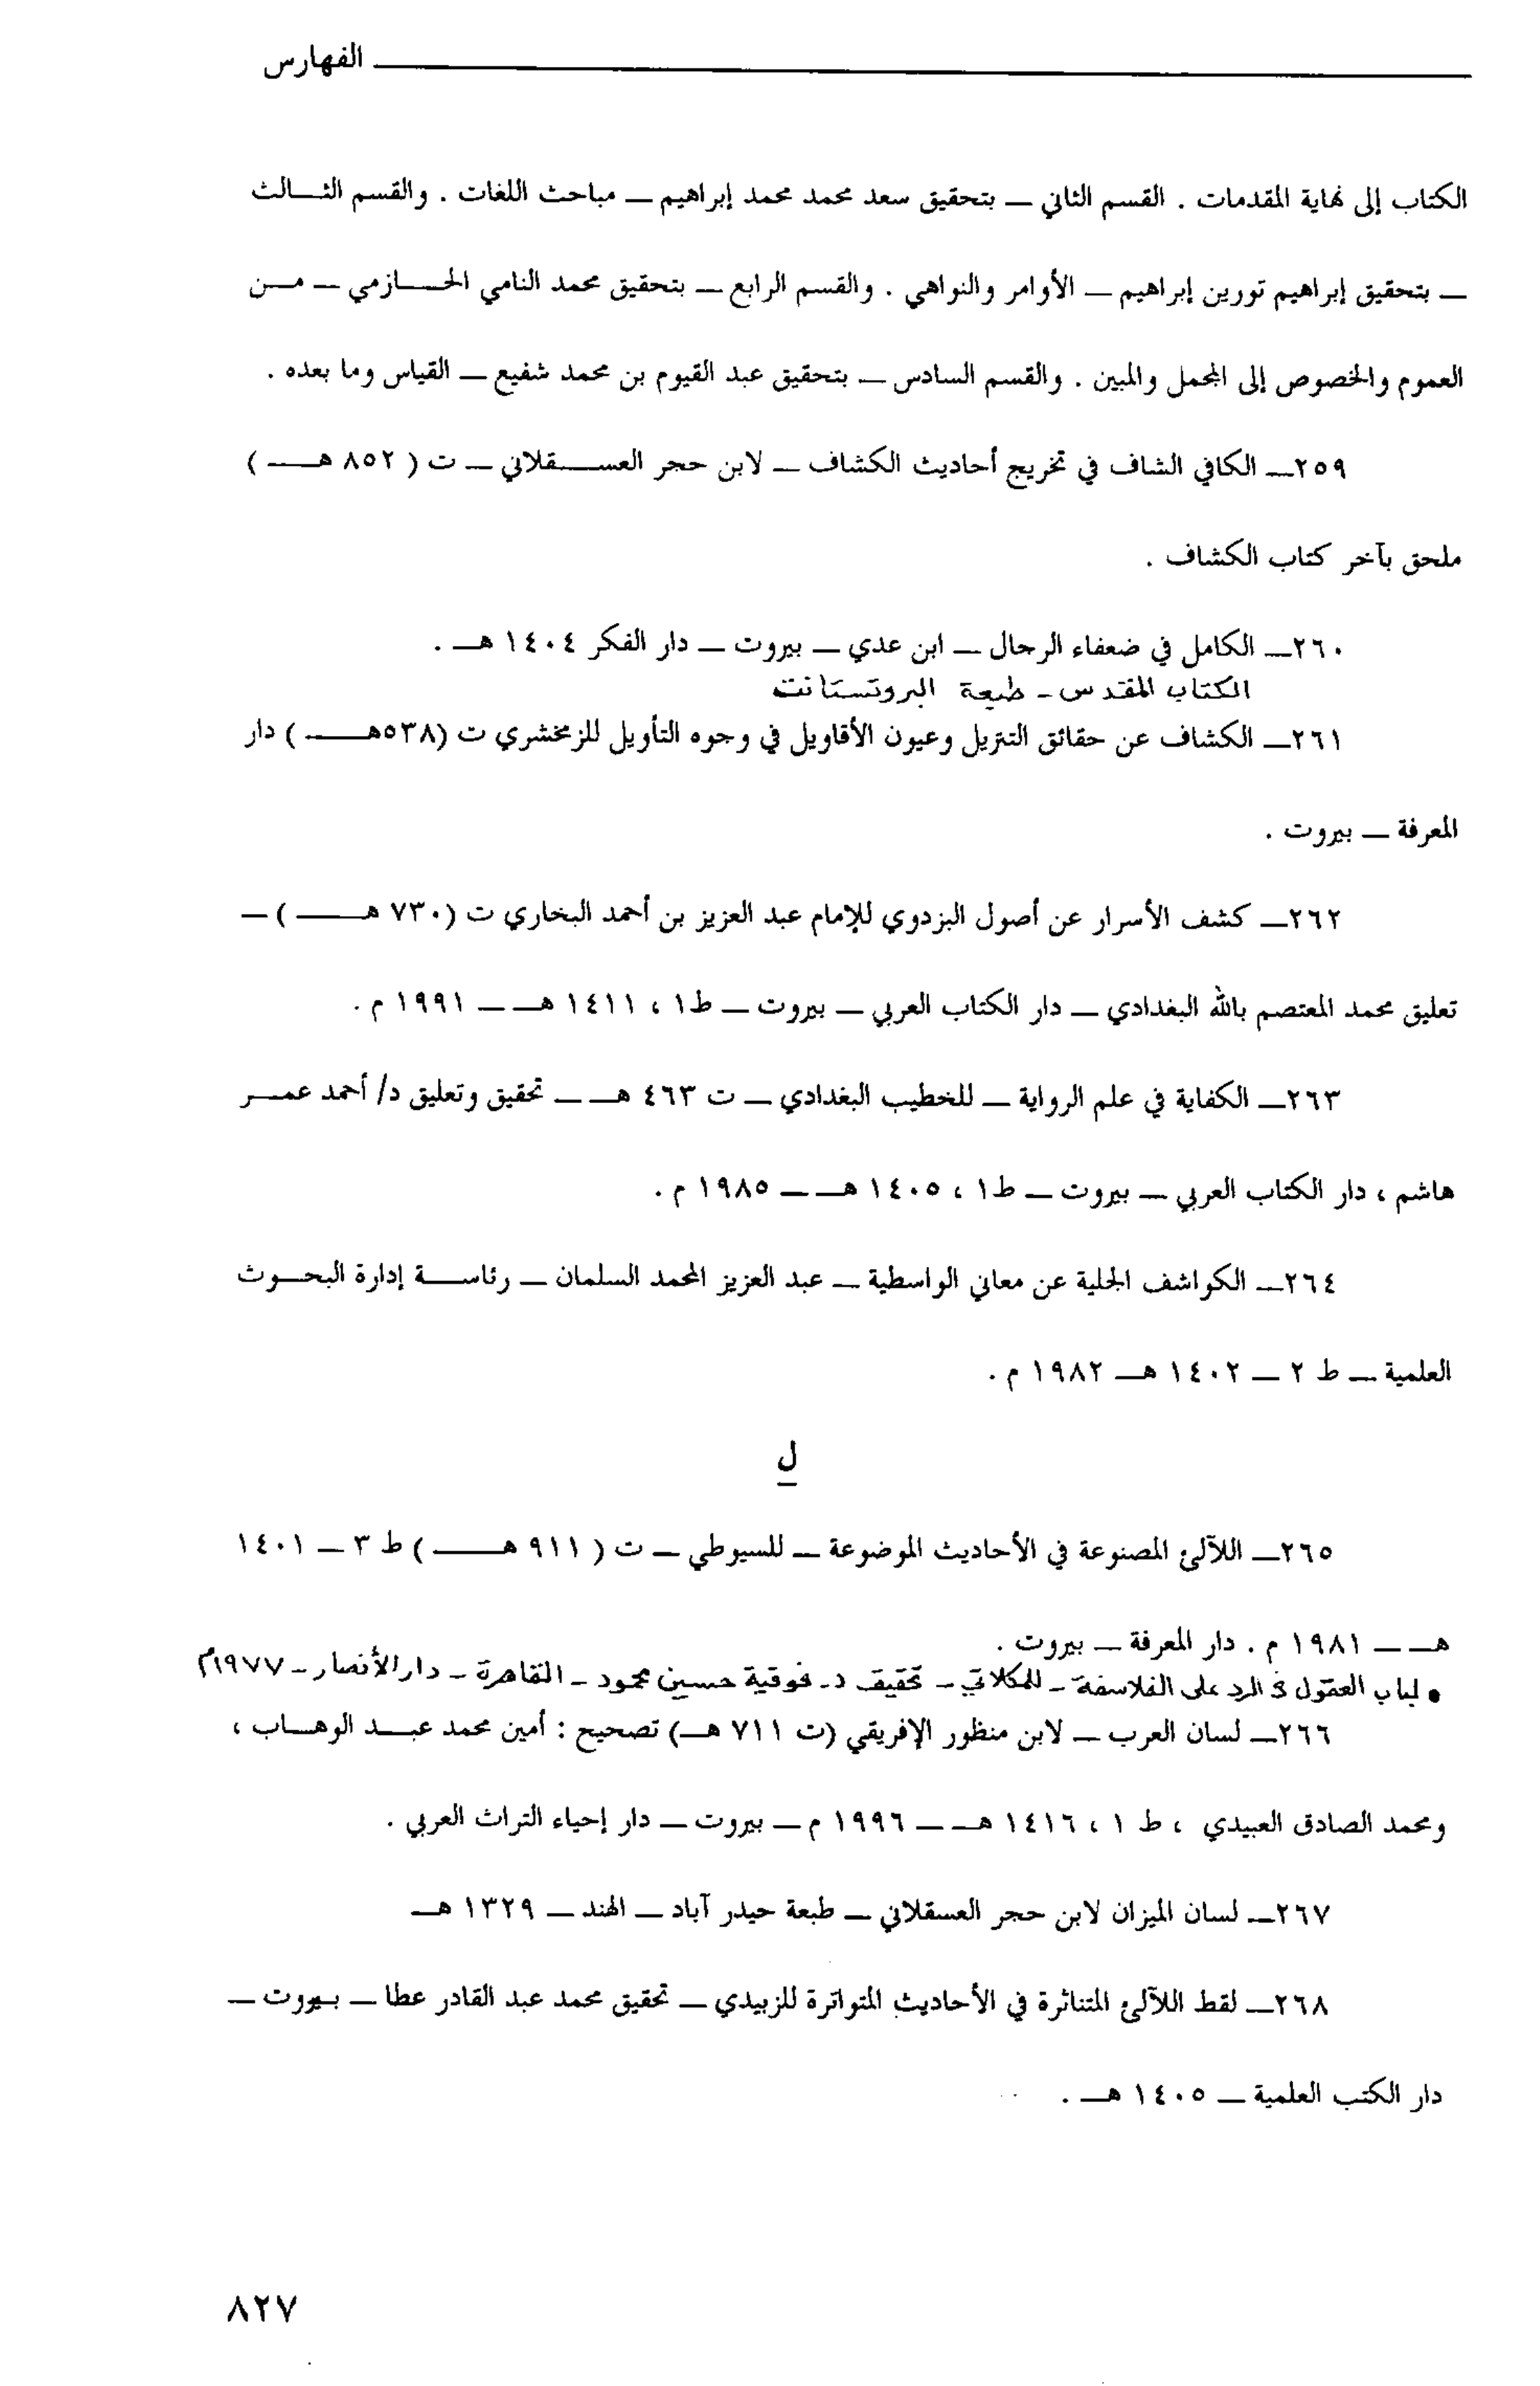 الفهارس
الكتاب إلى نهاية المقدمات . القسم الثاني ــ بتحقيق سعد محمد محمد إبراهيم ــ مباحث اللغات . والقسم الثالث
ــ بتحقيق إبراهيم تورين إبراهيم ــ الأوامر والنواهي . والقسم الرابع ــ بتحقيق محمد النامي الحازمي ــ من
العموم والخصوص إلى المجمل والمبين . والقسم السادس ــ بتحقيق عبد القيوم بن محمد شفيع ــ القياس وما بعده .
٢٥٩ــ الكافي الشاف في تخريج أحاديث الكشاف ــ لابن حجر العسقلاني ــ ت ( ٨٥٢ هـ )
ملحق بآخر كتاب الكشاف .
٢٦٠ــ الكامل في ضعفاء الرجال ــ ابن عدي ــ بيروت ــ دار الفكر ١٤٠٤ هـ .
الكتاب المقدس - طبعة البروتستانت
٢٦١ــ الكشاف عن حقائق التنزيل وعيون الأقاويل في وجوه التأويل للزمخشري ت (٥٣٨هـ ) دار
المعرفة ــ بيروت .
٢٦٢ــ كشف الأسرار عن أصول البزدوي للإمام عبد العزيز بن أحمد البخاري ت (٧٣٠ هـ ) ــ
تعليق محمد المعتصم بالله البغدادي ــ دار الكتاب العربي ــ بيروت ــ ط١ ، ١٤١١ هـ ــ ١٩٩١ م .
٢٦٣ــ الكفاية في علم الرواية ــ للخطيب البغدادي ــ ت ٤٦٣ هـ ــ تحقيق وتعليق د/ أحمد عمر
هاشم ، دار الكتاب العربي ــ بيروت ــ ط١ ، ١٤٠٥ هـ ــ ١٩٨٥ م .
٢٦٤ــ الكواشف الجلية عن معاني الواسطية ــ عبد العزيز المحمد السلمان ــ رئاسة إدارة البحوث
العلمية ــ ط ٢ ــ ١٤٠٢ هـ ١٩٨٢ م .
ل
٢٦٥ــ اللآلئ المصنوعة في الأحاديث الموضوعة ــ للسيوطي ــ ت ( ٩١١ هـ ) ط ٣ ــ ١٤٠١
هـ ــ ١٩٨١ م . دار المعرفة ــ بيروت .
• لباب العقول في الرد على الفلاسفة - للمكلاتي - تحقيق د. فوقية حسين محمود - القاهرة - دار الأنصار - ١٩٧٧م
٢٦٦ــ لسان العرب ــ لابن منظور الإفريقي (ت ٧١١ هـ) تصحيح : أمين محمد عبد الوهاب ،
ومحمد الصادق العبيدي ، ط ١ ، ١٤١٦ هـ ــ ١٩٩٦ م ــ بيروت ــ دار إحياء التراث العربي .
٢٦٧ــ لسان الميزان لابن حجر العسقلاني ــ طبعة حيدر آباد ــ الهند ــ ١٣٢٩ هـ
٢٦٨ــ لقط اللآلئ المتناثرة في الأحاديث المتواترة للزبيدي ــ تحقيق محمد عبد القادر عطا ــ بيروت ــ
دار الكتب العلمية ــ ١٤٠٥ هـ .
٨٢٧